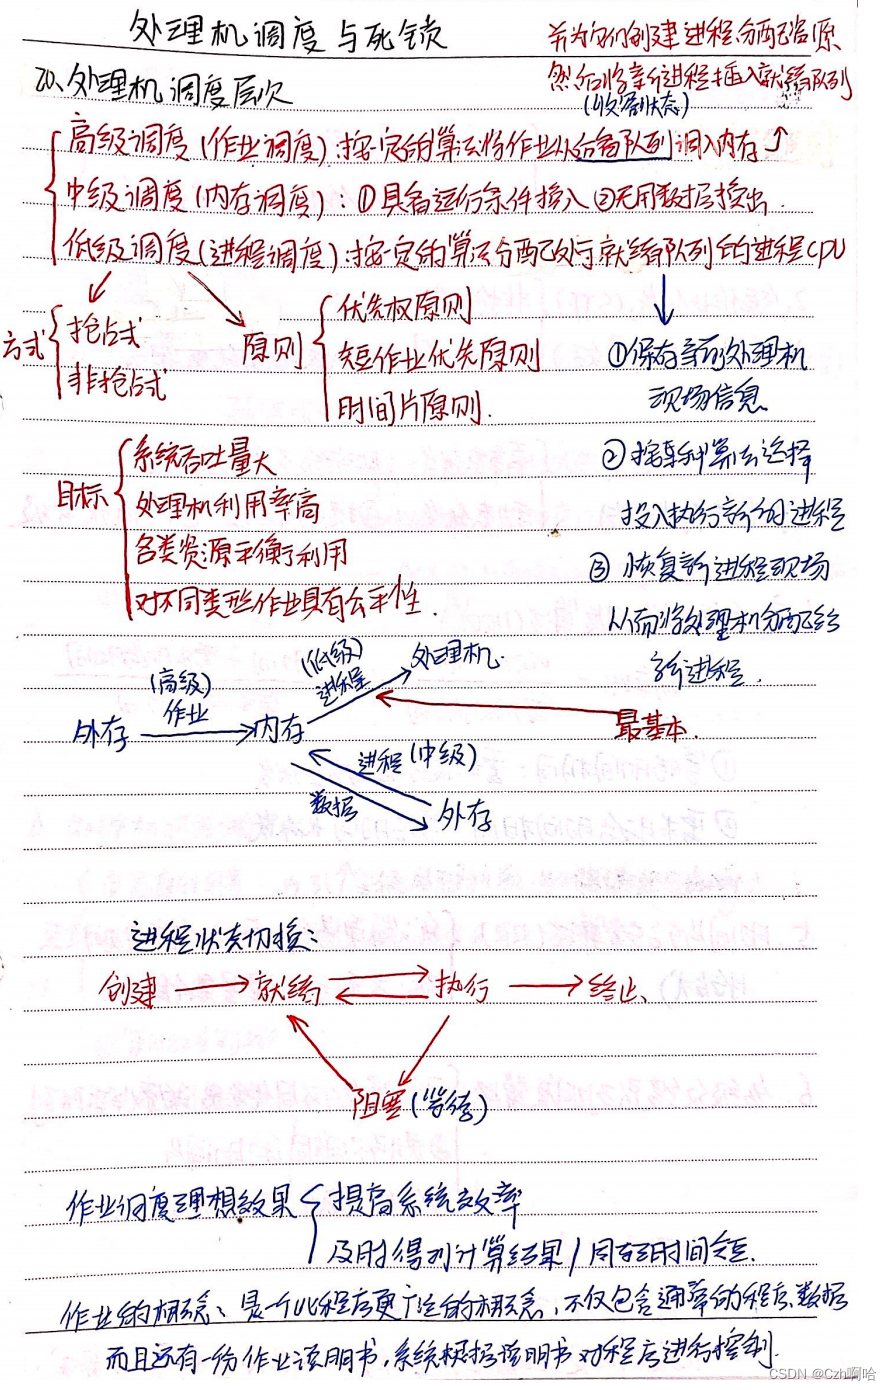 处理机调度与死锁
并为它们创建进程、分配资源
然后将新进程插入就绪队列
(收容状态)
20、处理机调度层次
高级调度(作业调度):按一定的算法将作业从后备队列调入内存
中级调度(内存调度):①具备运行条件换入②无用数据换出.
低级调度(进程调度):按一定的算法分配处于就绪队列的进程CPU
方式
抢占式
非抢占式
原则
优先权原则
短作业优先原则
时间片原则.
①保存当前处理机
现场信息
②按某种算法选择
投入执行新的进程
③恢复新进程现场
从而将处理机分配给
新进程.
目标
系统吞吐量大
处理机利用率高
各类资源平衡利用
对不同类型作业具有公平性.
外存
(高级)
作业
内存
(低级)
进程
处理机.
最基本.
进程(中级)
数据
外存
进程状态切换:
创建
就绪
执行
终止、
阻塞(等待)
作业调度理想效果
提高系统效率
及时得到计算结果/周转时间短.
作业的概念:是一个比程序更广泛的概念,不仅包含通常的程序、数据
而且还有一份作业说明书,系统根据说明书对程序进行控制.
CSDN @Czh啊哈